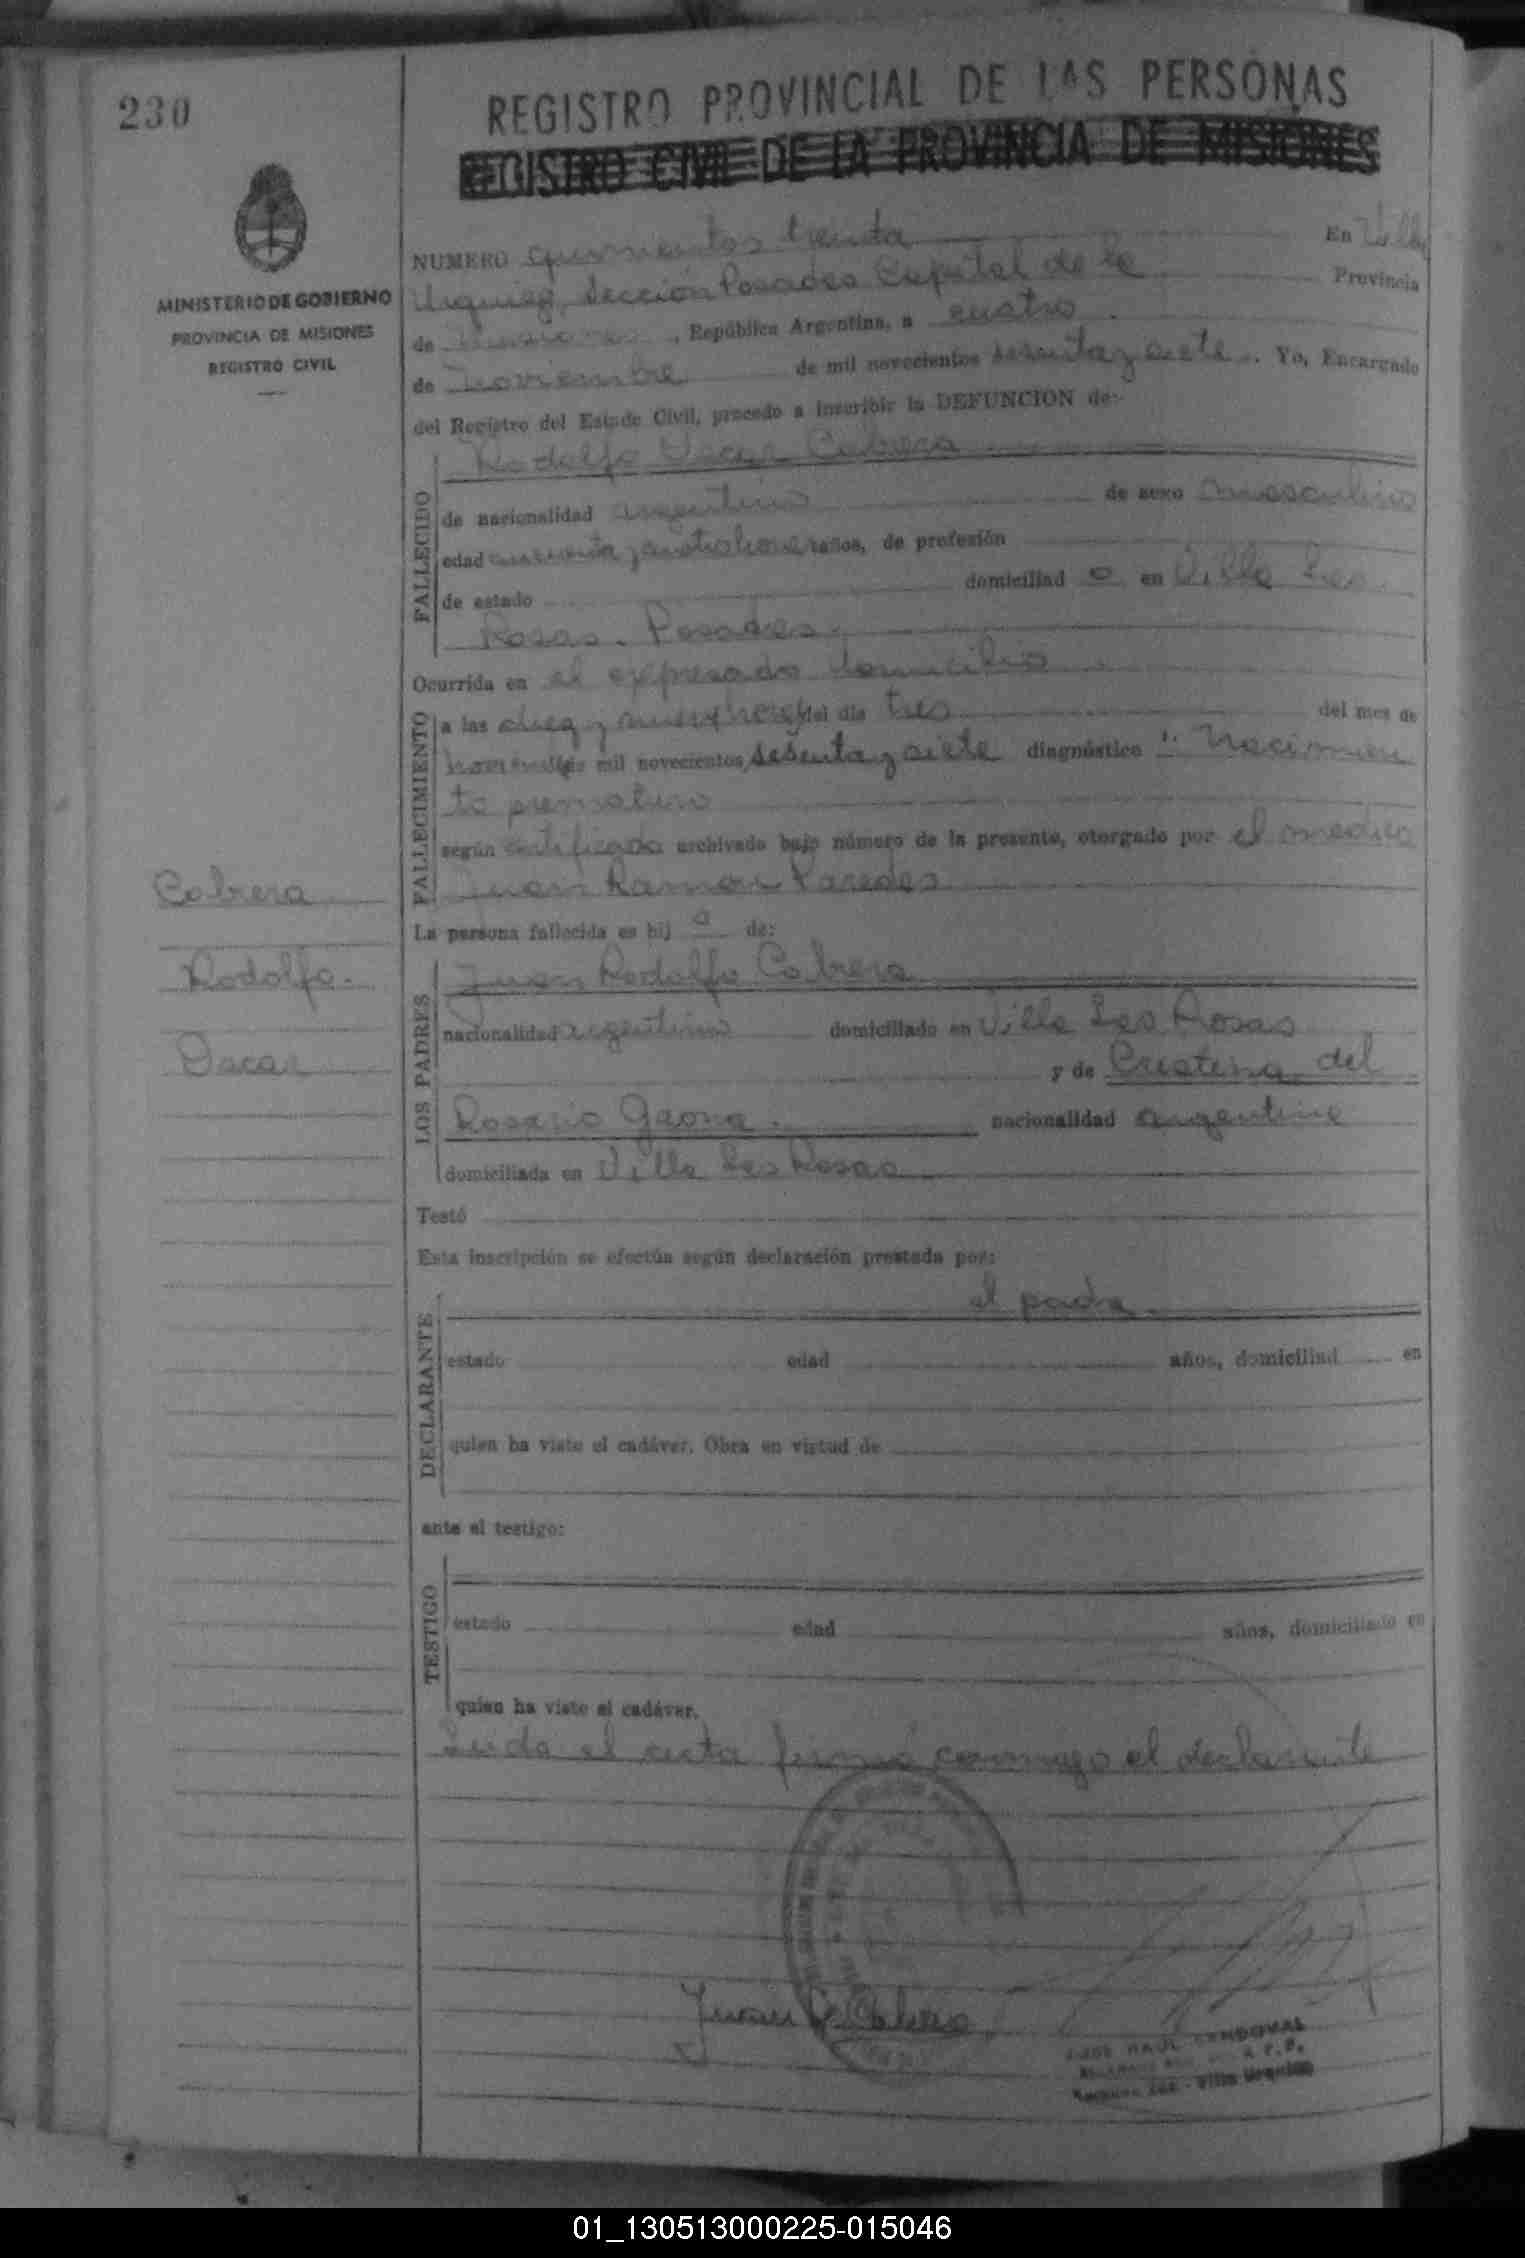 230
REGISTRO PROVINCIAL DE LAS PERSONAS
REGISTRO CIVIL DE LA PROVINCIA DE MISIONES
MINISTERIO DE GOBIERNO
PROVINCIA DE MISIONES
REGISTRO CIVIL
NUMERO quinientos treinta En Villa
Urquiza, Sección Posadas Capital de la Provincia
de Misiones, República Argentina, a cuatro
de noviembre de mil novecientos sesenta y siete. Yo, Encargado
del Registro del Estado Civil, procedo a inscribir la DEFUNCION de:
Rodolfo Oscar Cabrera
FALLECIDO
de nacionalidad argentino de sexo masculino
edad cuarenta y cuatro horas años, de profesión
de estado domiciliad o en Villa Las
Rosas. Posadas.
Ocurrida en el expresado domicilio
FALLECIMIENTO
a las diez y nueve horas del día tres del mes de
noviembre de mil novecientos sesenta y siete diagnóstico "Nacimien
to prematuro
según certificado archivado bajo número de la presente, otorgado por el medico
Juan Ramon Paredes
La persona fallecida es hij o de:
LOS PADRES
Juan Rodolfo Cabrera
nacionalidad argentino domiciliado en Villa Las Rosas
y de Cristina del
Rosario Gaona. nacionalidad argentina
domiciliada en Villa Las Rosas
Testó
Esta inscripción se efectúa según declaración prestada por:
DECLARANTE
el padre.
estado edad años, domiciliad en
quien ha visto el cadáver. Obra en virtud de
ante el testigo:
TESTIGO
estado edad años, domiciliado en
quien ha visto el cadáver.
Leida el acta firma conmigo el declarante
Cabrera
Rodolfo.
Oscar
Juan Cabrera
JOSE RAUL SANDOVAL
Villa Urquiza
01_130513000225-015046